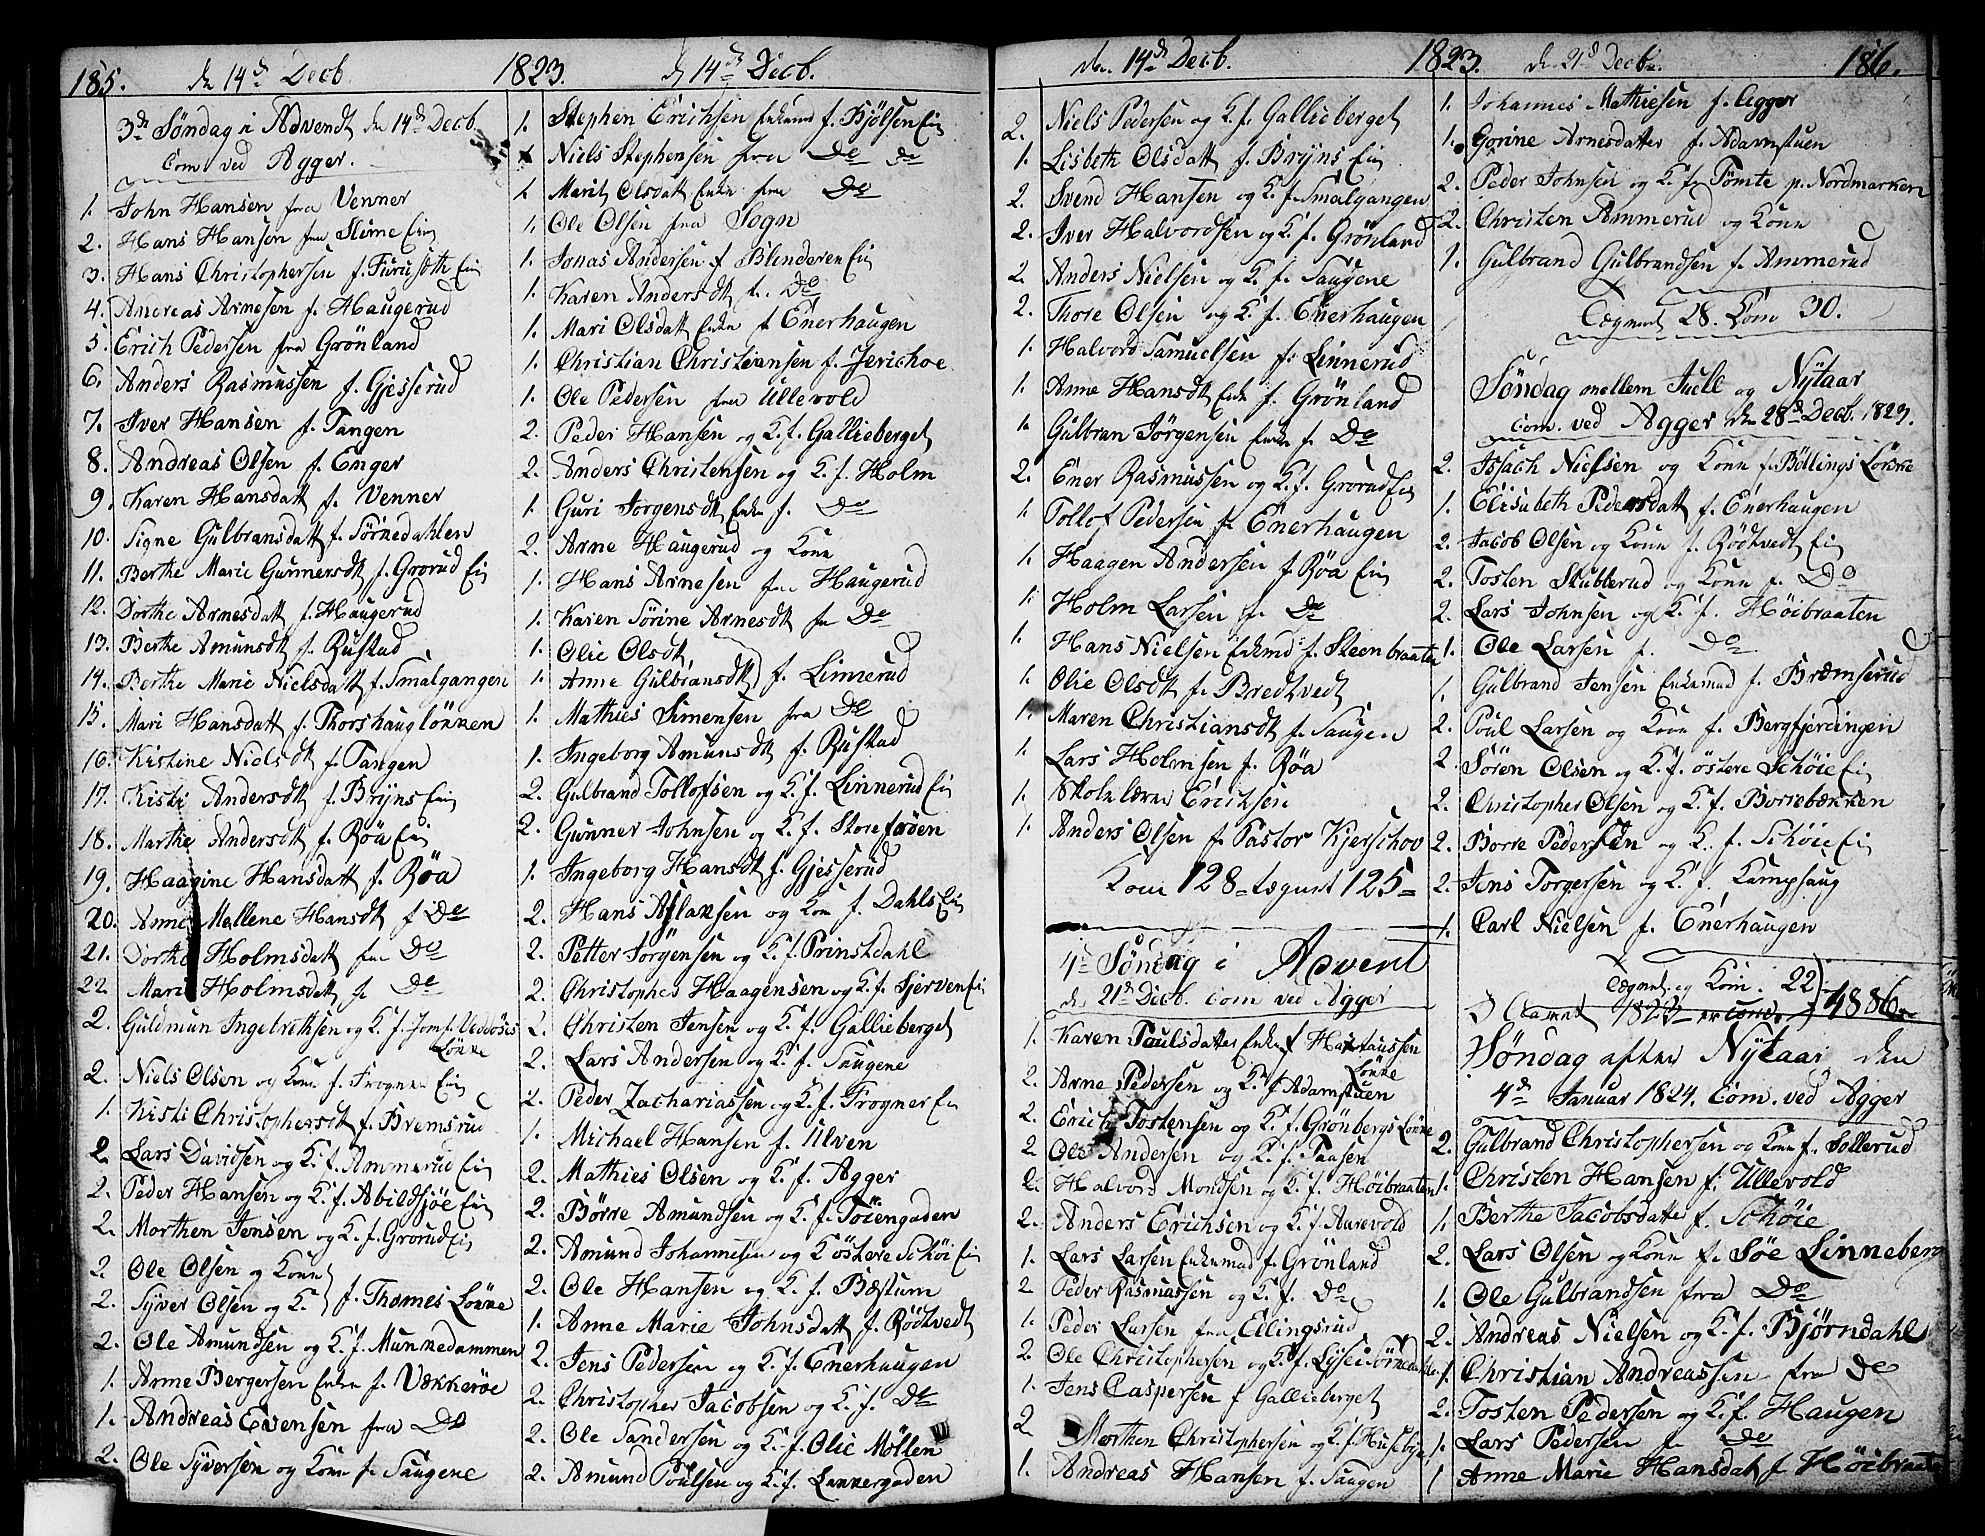 185. d 14d Decb. 1823. d 14de Decb.
3de Søndag i Advendt d 14de Decb.
Com ved Agger.
1. John Hansen fra Venner
2. Hans Hansen fra Eie
3. Hans Christophersen f. Furusæth Eie
4. Andreas Arnesen f. Haugerud
5. Erich Pedersen fra Grönland
6. Anders Rasmussen f. Gjesserud
7. Iver Hansen f. Tangen
8. Andreas Olsen f. Enger
9. Karen Hansdatt f. Venner
10. Signe Gulbransdatt f. Sörkedahlen
11. Berthe Marie Gunnersdt f. Grorud Ei
12. Dorthe Arnesdatt f. Haugerud
13. Berthe Amunsdt f. Rustad
14. Berthe Marie Nielsdatt f. Smalgangen
15. Mari Hansdatt f. Thorshauglökken
16. Kistine Nielsdt f. Tangen
17. Kisti Andersdt f. Bryns Ei
18. Marthe Andersdt f. Röa Ei
19. Haagine Hansdatt f. Röa
20. Anne Mallene Hansdt f Do
21. Dorthe Holmsdatt fra Do
22. Mari Holmsdatt f. Do
2. Guldmun Ingebrethsen og K. f. Jomf.
Lökke
2. Niels Olsen og Kone f. Frogner Ei
1. Kisti Christophersdt f. Bremsrud
2. Lars Davidsen og K. f. Ammerud Ei
2. Peder Hansen og K. f. Abildsjøe Ei
2. Morthen Jensen og K. f. Grorud Ei
2. Ole Olsen og Kone
2. Syver Olsen og K. f. Thomes Lökke
2. Ole Amundsen og K. f. Munkedammen
1. Anne Bergersen Enke f. Vækkerøe
1. Andreas Evensen fra Do
2. Ole Syversen og Kone f. Saugene
1. Stephen Erichsen Enkemd f. Bjölsen Ei
1. Niels Stephensen fra Do do
1. Marit Olsdatt Enke fra Do
1. Ole Olsen fra Sogn
1. Jonas Andersen f Blinderen Ei
1. Karen Andersdt f. Do
1. Mari Olsdatt Enke f Enerhaugen
1. Christian Christiansen f. Jerichoe
1. Ole Pedersen fra Ullevold
2. Peder Hansen og K. f. Gallieberget
2. Anders Christensen og K. f. Holm
1. Guri Jorgensdt Enke f. Do
2. Arne Haugerud og Kone
1. Hans Arnesen fra Haugerud
1. Karen Sörine Arnesdt fra Do
1. Olie Olsdt
1. Anne Gulbransdt f. Linnerud
1. Mathies Simensen fra Do
1. Ingeborg Amunsdt f. Rustad
2. Gulbrand Tollofsen og K. f. Linnerud Ei
2. Gunner Johnsen og K. f. Store fröen
1. Ingeborg Hansdt f. Gjesserud
2. Hans Aslaksen og Kone f. Dahls Ei
2. Petter Jorgensen og K. f. Prinsdahl
2. Christopher Haagensen og K. f. Tjerven Ei
2. Christen Jensen og K. f. Gallieberget
2. Lars Andersen og K. f. Saugene
2. Peder Zachariassen og K. f. Frogner Ei
1. Michael Hansen f. Ulven
2. Mathies Olsen og K. f. Agger
2. Börre Amundsen og K. f. Töiengaden
2. Amund Johannesen og K östere Schöi Ei
2. Ole Hansen og K. f. Bæstum
1. Anne Marie Johnsdatt f. Rödtvedt
2. Jens Pedersen og K. f. Enerhaugen
2. Christopher Jacobsen og K. f. Do
2. Ole Sandersen og K. f. Olie Möllen
2. Amund Poulsen og K. f. Lakkergaden
den 14de Decb. 1823. d. 21d Decb. 186.
2. Niels Pedersen og K. f. Gallieberget
1. Lisbeth Olsdatt f. Bryns Ei
2. Svend Hansen og K. f. Smalgangen
2. Iver Halvordsen og K. f. Grönland
2. Anders Nielsen og K. f. Saugene
2. Thore Olsen og K. f. Enerhaugen
1. Halvord Samuelsen f. Linnerud
1. Anne Hansdt Enke f. Grönland
1. Gulbran Jörgensen Enke f. Do
2. Ener Rasmussen og K. f. Grorud Ei
1. Tollof Pedersen f. Enerhaugen
1. Haagen Andersen f. Röa Ei
1. Holm Larsen f. Do
1. Hans Nielsen Enkemd f. Steenbraaten
1. Olie Olsdt f. Bredtvedt
1. Maren Christiansdt f. Saugen
1. Lars Holmsen f. Röa
1. Skolelærer Erichsen
1. Anders Olsen f. Pastor Kjerschov
Kom 128 - tegnet 125 -
4de Søndag i Advent
d 21de Decb. Com ved Agger
1. Karen Paulsdatter Enke f
Lökke
2. Arne Pedersen og K. f. Adamstuen
2. Erich Tostensen og K. f. Grönbergs Lökke
2. Ole Andersen og K. f. Taasen
2. Halvord Mondsen og K. f. Höibraaten
2. Anders Erichsen og K. f. Aurevold
1. Lars Larsen Enkemd f. Grönland
2. Peder Rasmussen og K. f. Do
1. Peder Larsen fra Ellingsrud
2. Ole Christophersen og K. f.
1. Jens Caspersen f Gallieberget
2. Morthen Christophersen og K. f. Huseby
1. Andreas Hansen f. Saugen
1. Johannes Mathiesen f. Agger
1. Gorine Arnesdatter f. Adamstuen
2. Peder Johnsen og K. f. Tömte p. Nordmarken
2. Christen Ammerud og Kone
1. Gulbrand Gulbrandsen f. Ammerud
Tegnet 28. Kom 30.
Søndag mellem Juell og Nytaar
com. ved Agger den 28de Decb. 1823.
2. Issach Nielsen og Kone f. Böllings Lökke
1. Elisabeth Pedersdatt f. Enerhaugen
2. Jacob Olsen og Kone f. Rödtvedt Ei
2. Tosten Stubberud og Kone f. Do
2. Lars Johnsen og K. f. Höibraaten
1. Ole Larsen f. Do
1. Gulbrand Jensen Enkemd f. Bræmserud
2. Poul Larsen og Kone f. Bergfjerdingen
2. Sören Olsen og K. f. östere Schöie Ei
2. Christopher Olsen og K. f. Borrebækken
2. Borre Pedersen og K. f. Schöie Ei
2. Jens Torgersen og K. f. Kamphaug
1. Carl Nielsen f. Enerhaugen
Tegnet og Kom. 22
1823 er 4886
Søndag efter Nytaar den
4de Januar 1824. Com. ved Agger
2. Gulbrand Christophersen og Kone f. Sollerud
1. Christen Hansen f. Ullevold
1. Berthe Jacobsdatter f. Schöie
2. Lars Olsen og Kone f. Söe Linneberg
1. Ole Gulbrandsen fra Do
2. Andreas Nielsen og K. f. Bjørndahl
1. Christian Andreassen fra Do
2. Tosten Pedersen og K. f. Haugen
1. Lars Pedersen fr Do
1 Anne Marie Hansdatt f Höibraate